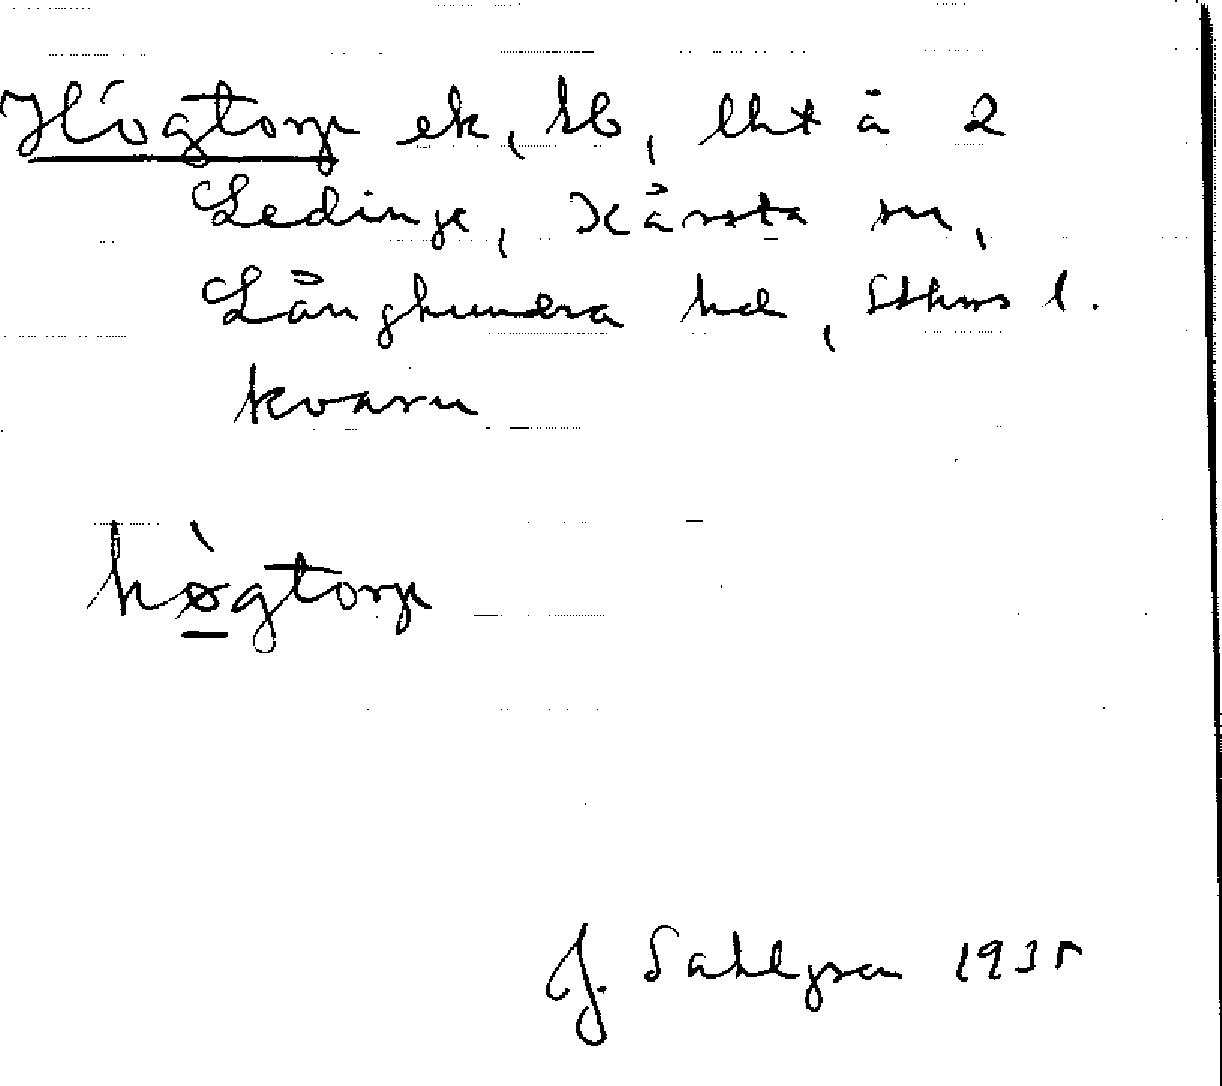 Högtorp ek, lht å 2
Ledinge, Kårsta sn,
Långhundra hd, Sthms l.
kvarn
hø̀gtorp
J. Sahlgren 1935